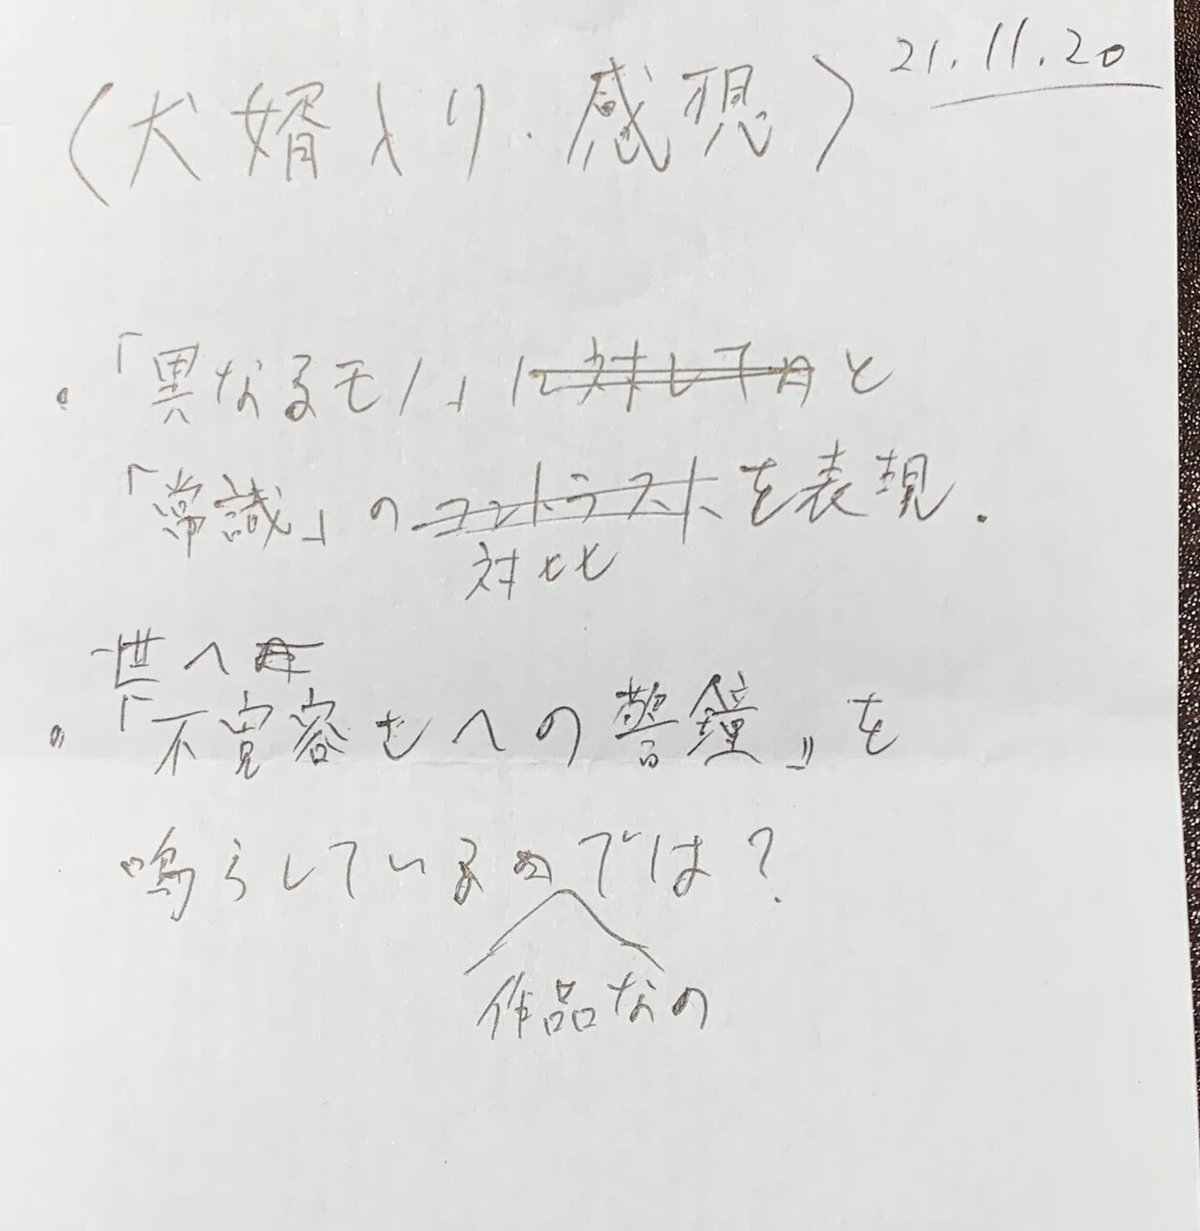 21.11.20
〈犬婿入り・感想〉
・「異なるモノ」に対してのと
「常識」のコントラストを表現.
対比
世への
・「不寛容さへの警鐘」を
鳴らしているのでは?
作品なの